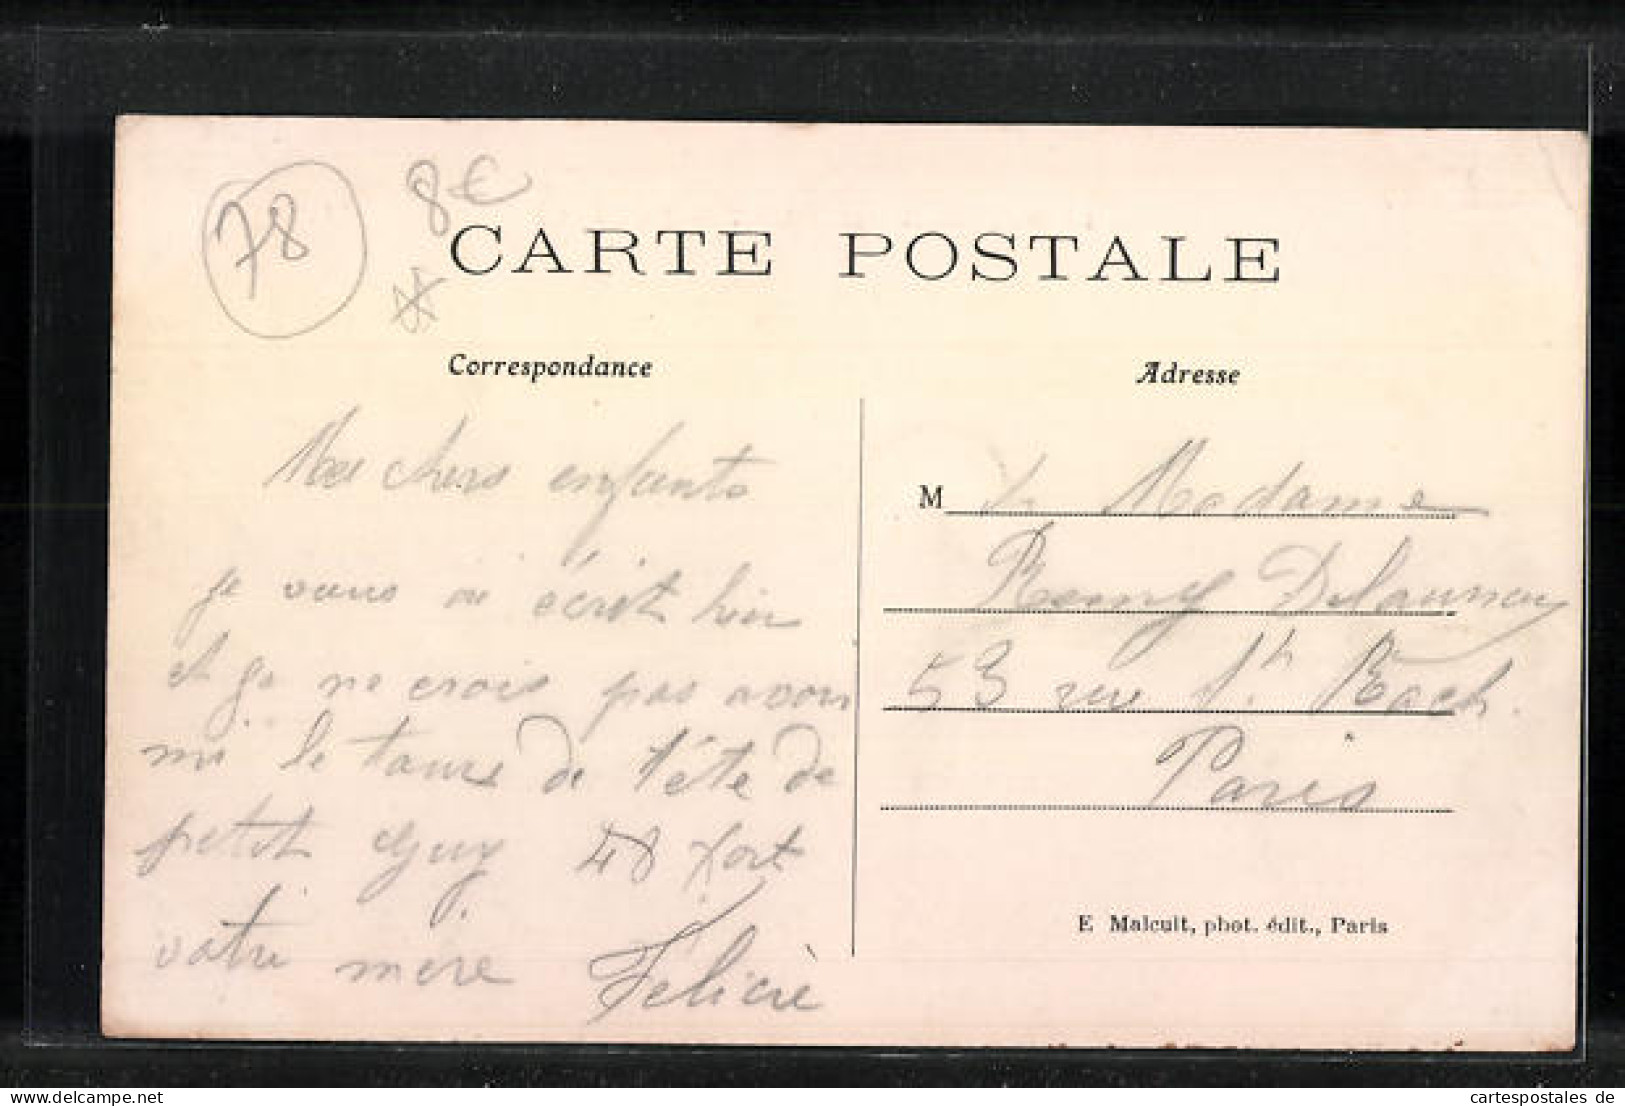 78
8€
CARTE POSTALE
Correspondance
Adresse
Mes chers enfants
je vous ai écrit hier
et je ne crois pas avoir
mi le tour de tête de
petit Guy 48 fort
votre mère Felicie
M & Madame
Remy Delaunay
53 rue St. Roch.
Paris
E Malcuit, phot. édit., Paris
www.cartespostales.de
cartespostales de